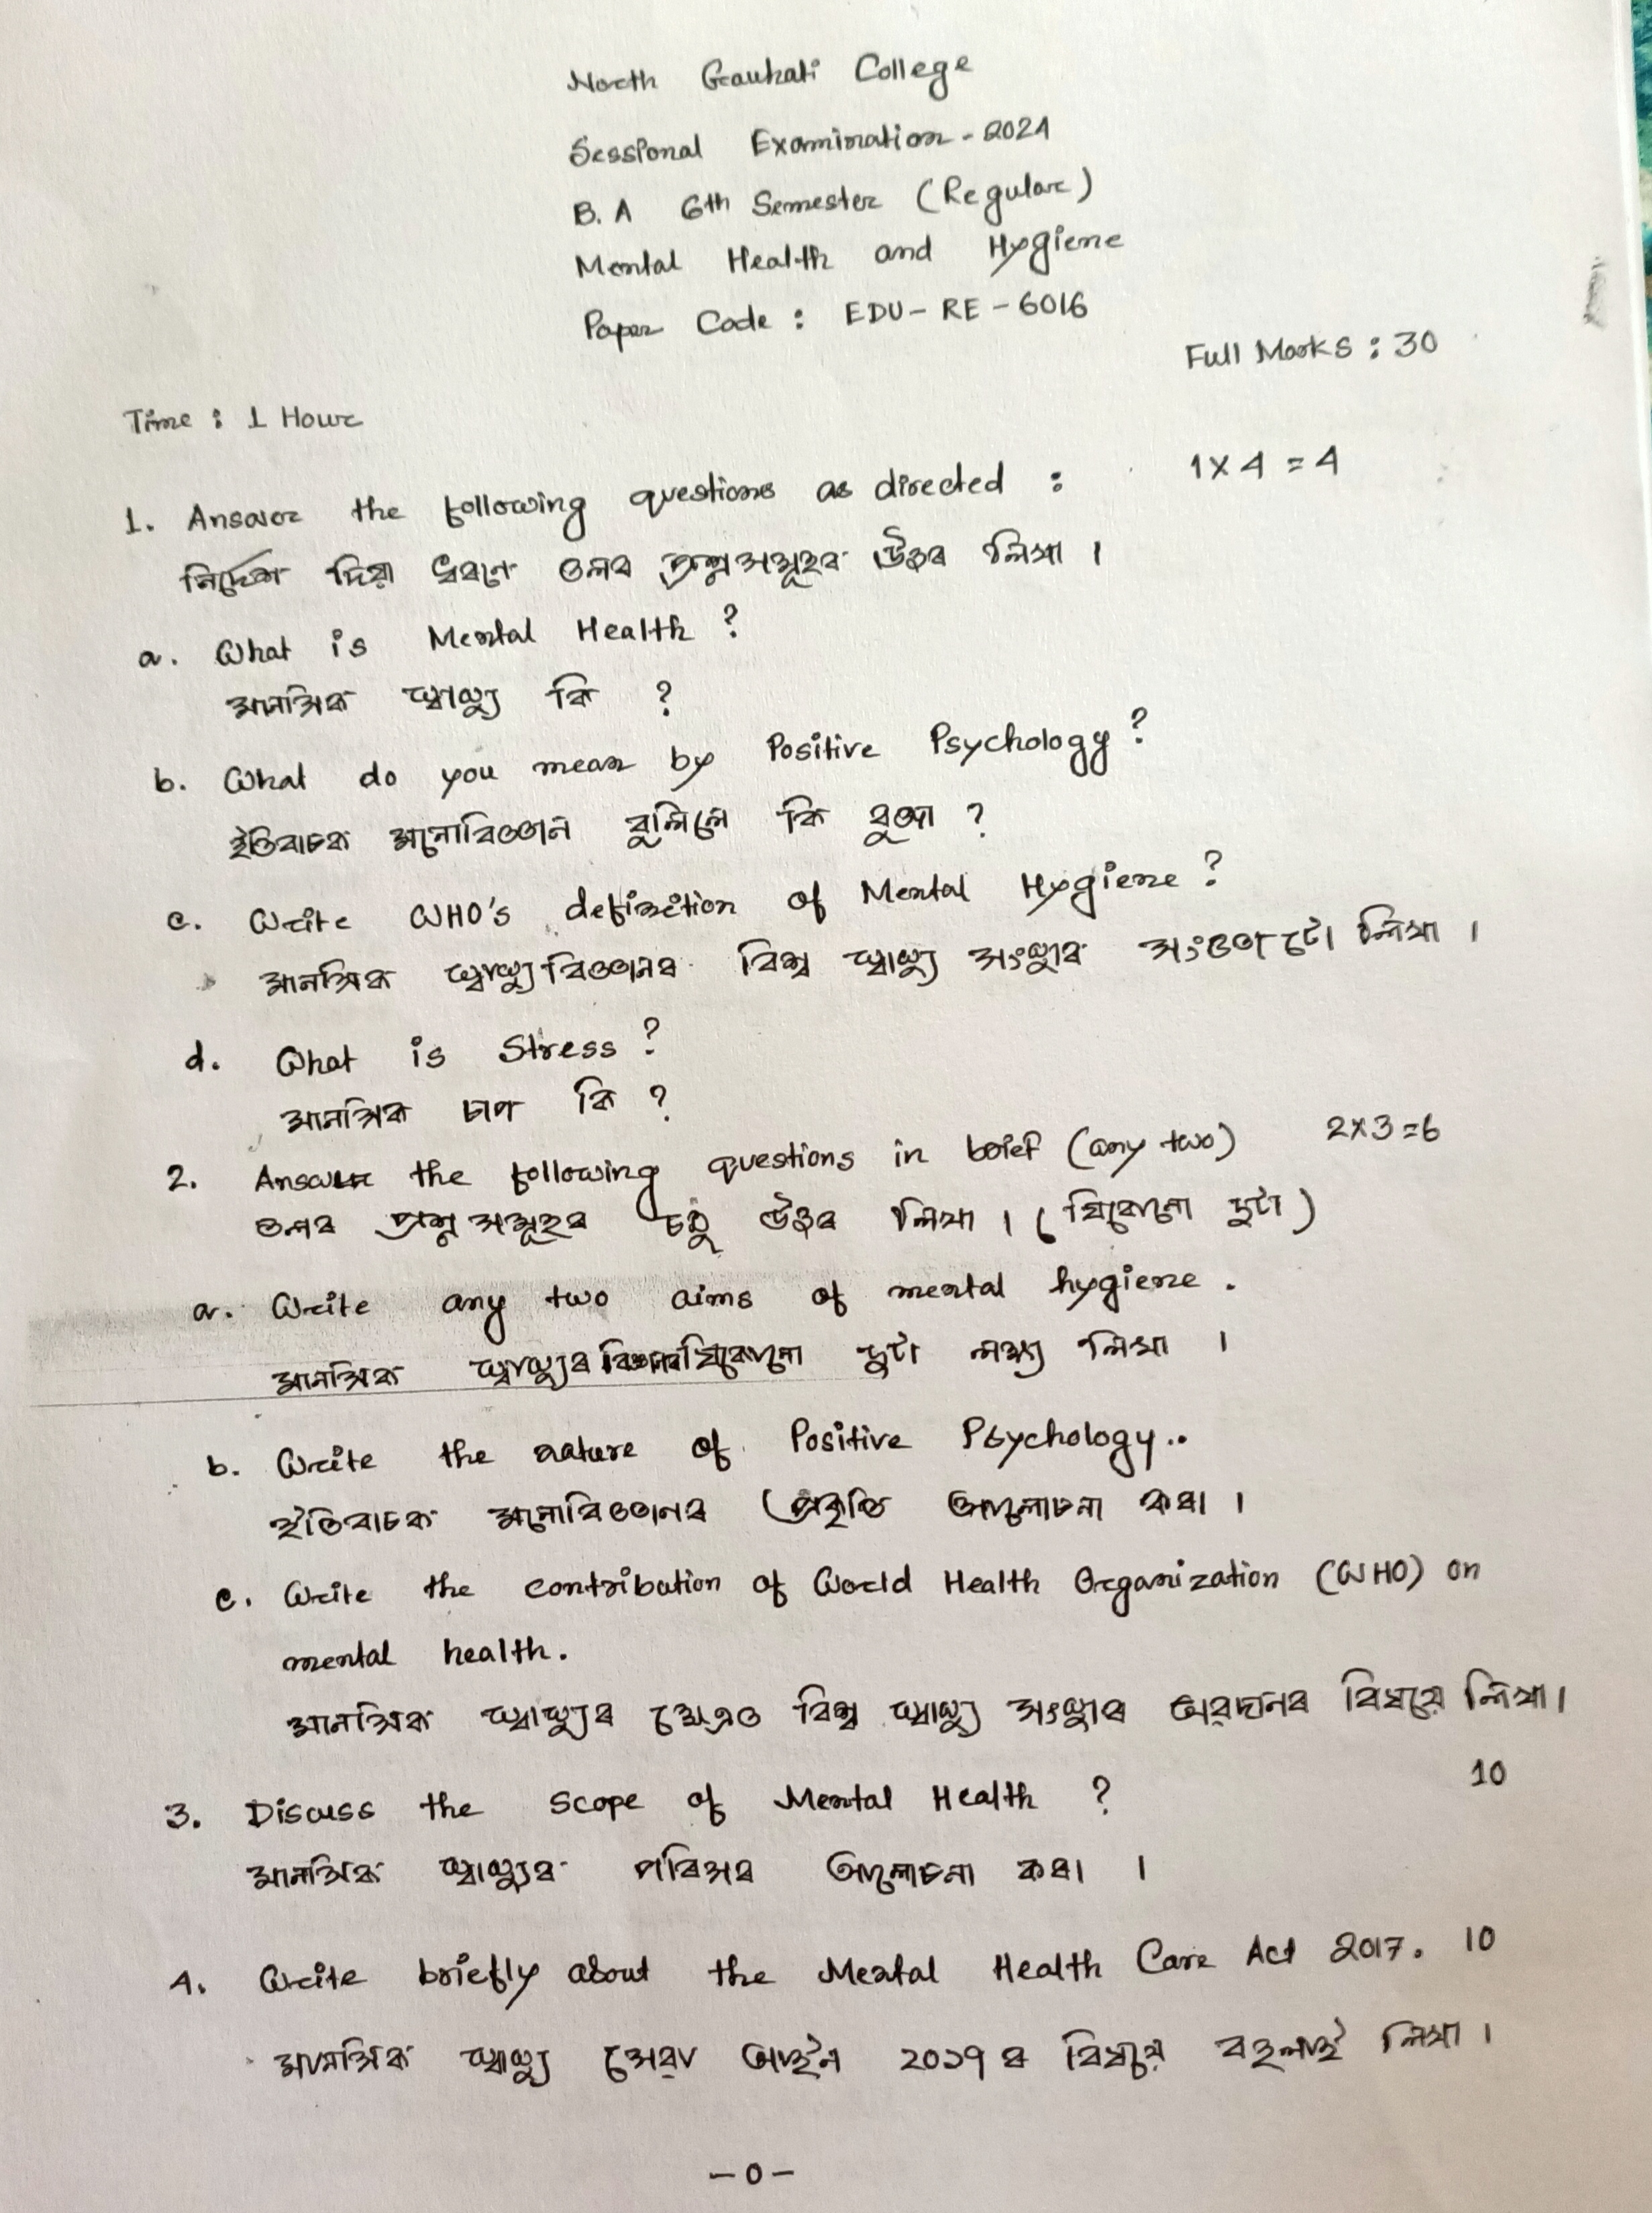 North Gauhati College
Sessional Examination - 2024
B. A 6th Semester (Regular)
Mental Health and Hygiene
Paper Code : EDU- RE - 6016
Full Marks : 30
Time : 1 Hour
1. Answer the following questions as directed : 1x4 = 4
নিৰ্দেশ দিয়া ধৰণে তলৰ প্ৰশ্নসমূহৰ উত্তৰ লিখা ।
a. What is Mental Health ?
মানসিক স্বাস্থ্য কি ?
b. What do you mean by Positive Psychology ?
ইতিবাচক মনোবিজ্ঞান বুলিলে কি বুজা ?
c. Write WHO's definition of Mental Hygiene ?
মানসিক স্বাস্থ্যবিজ্ঞানৰ বিশ্ব স্বাস্থ্য সংস্থাৰ সংজ্ঞাটো লিখা ।
d. What is Stress ?
মানসিক চাপ কি ?
2. Answer the following questions in brief (any two) 2x3=6
তলৰ প্ৰশ্নসমূহৰ চমু উত্তৰ লিখা । (যিকোনো দুটা)
a. Write any two aims of mental hygiene .
মানসিক স্বাস্থ্যৰ বিজ্ঞানৰ যিকোনো দুটা লক্ষ্য লিখা ।
b. Write the nature of Positive Psychology..
ইতিবাচক মনোবিজ্ঞানৰ প্ৰকৃতি আলোচনা কৰা ।
c. Write the contribution of World Health Organization (WHO) on
mental health.
মানসিক স্বাস্থ্যৰ ক্ষেত্ৰত বিশ্ব স্বাস্থ্য সংস্থাৰ অৱদানৰ বিষয়ে লিখা।
3. Discuss the scope of Mental Health ? 10
মানসিক স্বাস্থ্যৰ পৰিসৰ আলোচনা কৰা ।
4. Write briefly about the Mental Health Care Act 2017. 10
মানসিক স্বাস্থ্য সেৱা আইন ২০১৭ ৰ বিষয়ে বহলাই লিখা ।
-0-